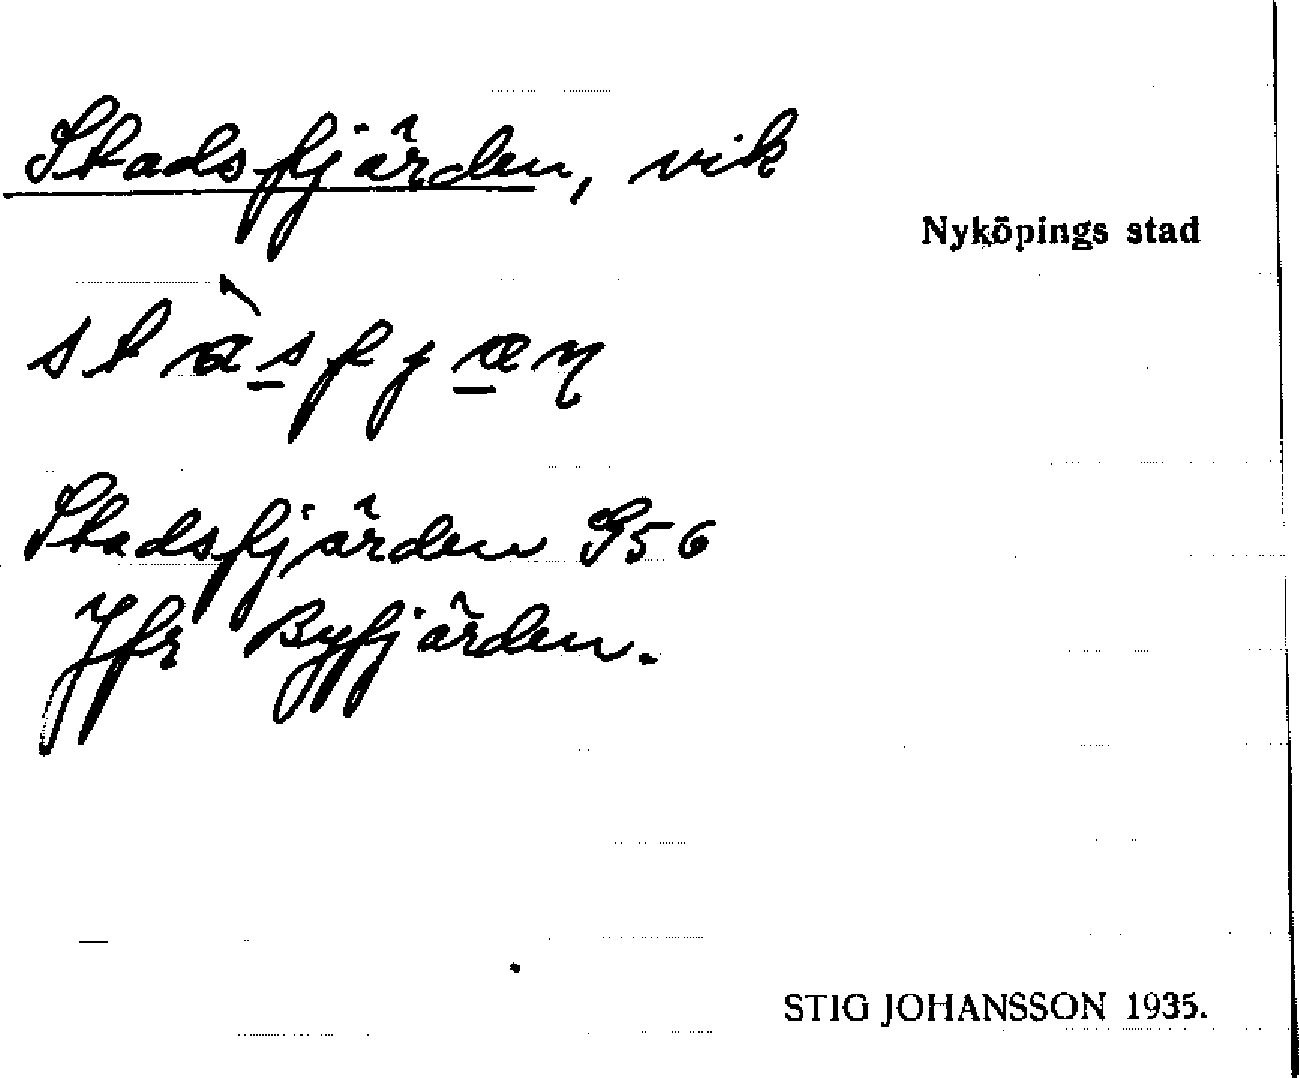 Stadsfjärden, vik
Nyköpings stad
stàsfjæɳ
Stadsfjärden G56
Jfr Byfjärden.
STIG JOHANSSON 1935.